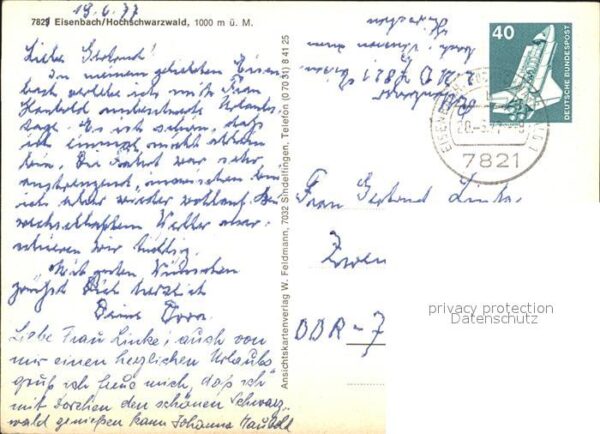 19.6.77
7821 Eisenbach/Hochschwarzwald, 1000 m ü. M.
Liebe Gertrud!
In meinem geliebten Eisen-
bach verlebe ich mit Frau
unbeschwerte Urlaubs-
tage. Es ist schön, daß
ich einmal nicht allein
bin. Die Fahrt war sehr
anstrengend, inzwischen bin
ich aber wieder wohlauf. Bei
wechselhaftem Wetter mar-
schieren wir tüchtig.
Mit guten Wünschen
grüßt Dich herzlich
Deine Dora.
Liebe Frau Linke, auch von
mir einen herzlichen Urlaubs-
gruß ich freue mich, daß ich
mit Dorchen den schönen Schwarz-
wald genießen kann Johanna
Ansichtskartenverlag W. Feldmann, 7032 Sindelfingen, Telefon (0 70 31) 8 41 25
7821
40
DEUTSCHE BUNDESPOST
7821
Frau Gertrud Linke
DDR-7
privacy protection
Datenschutz